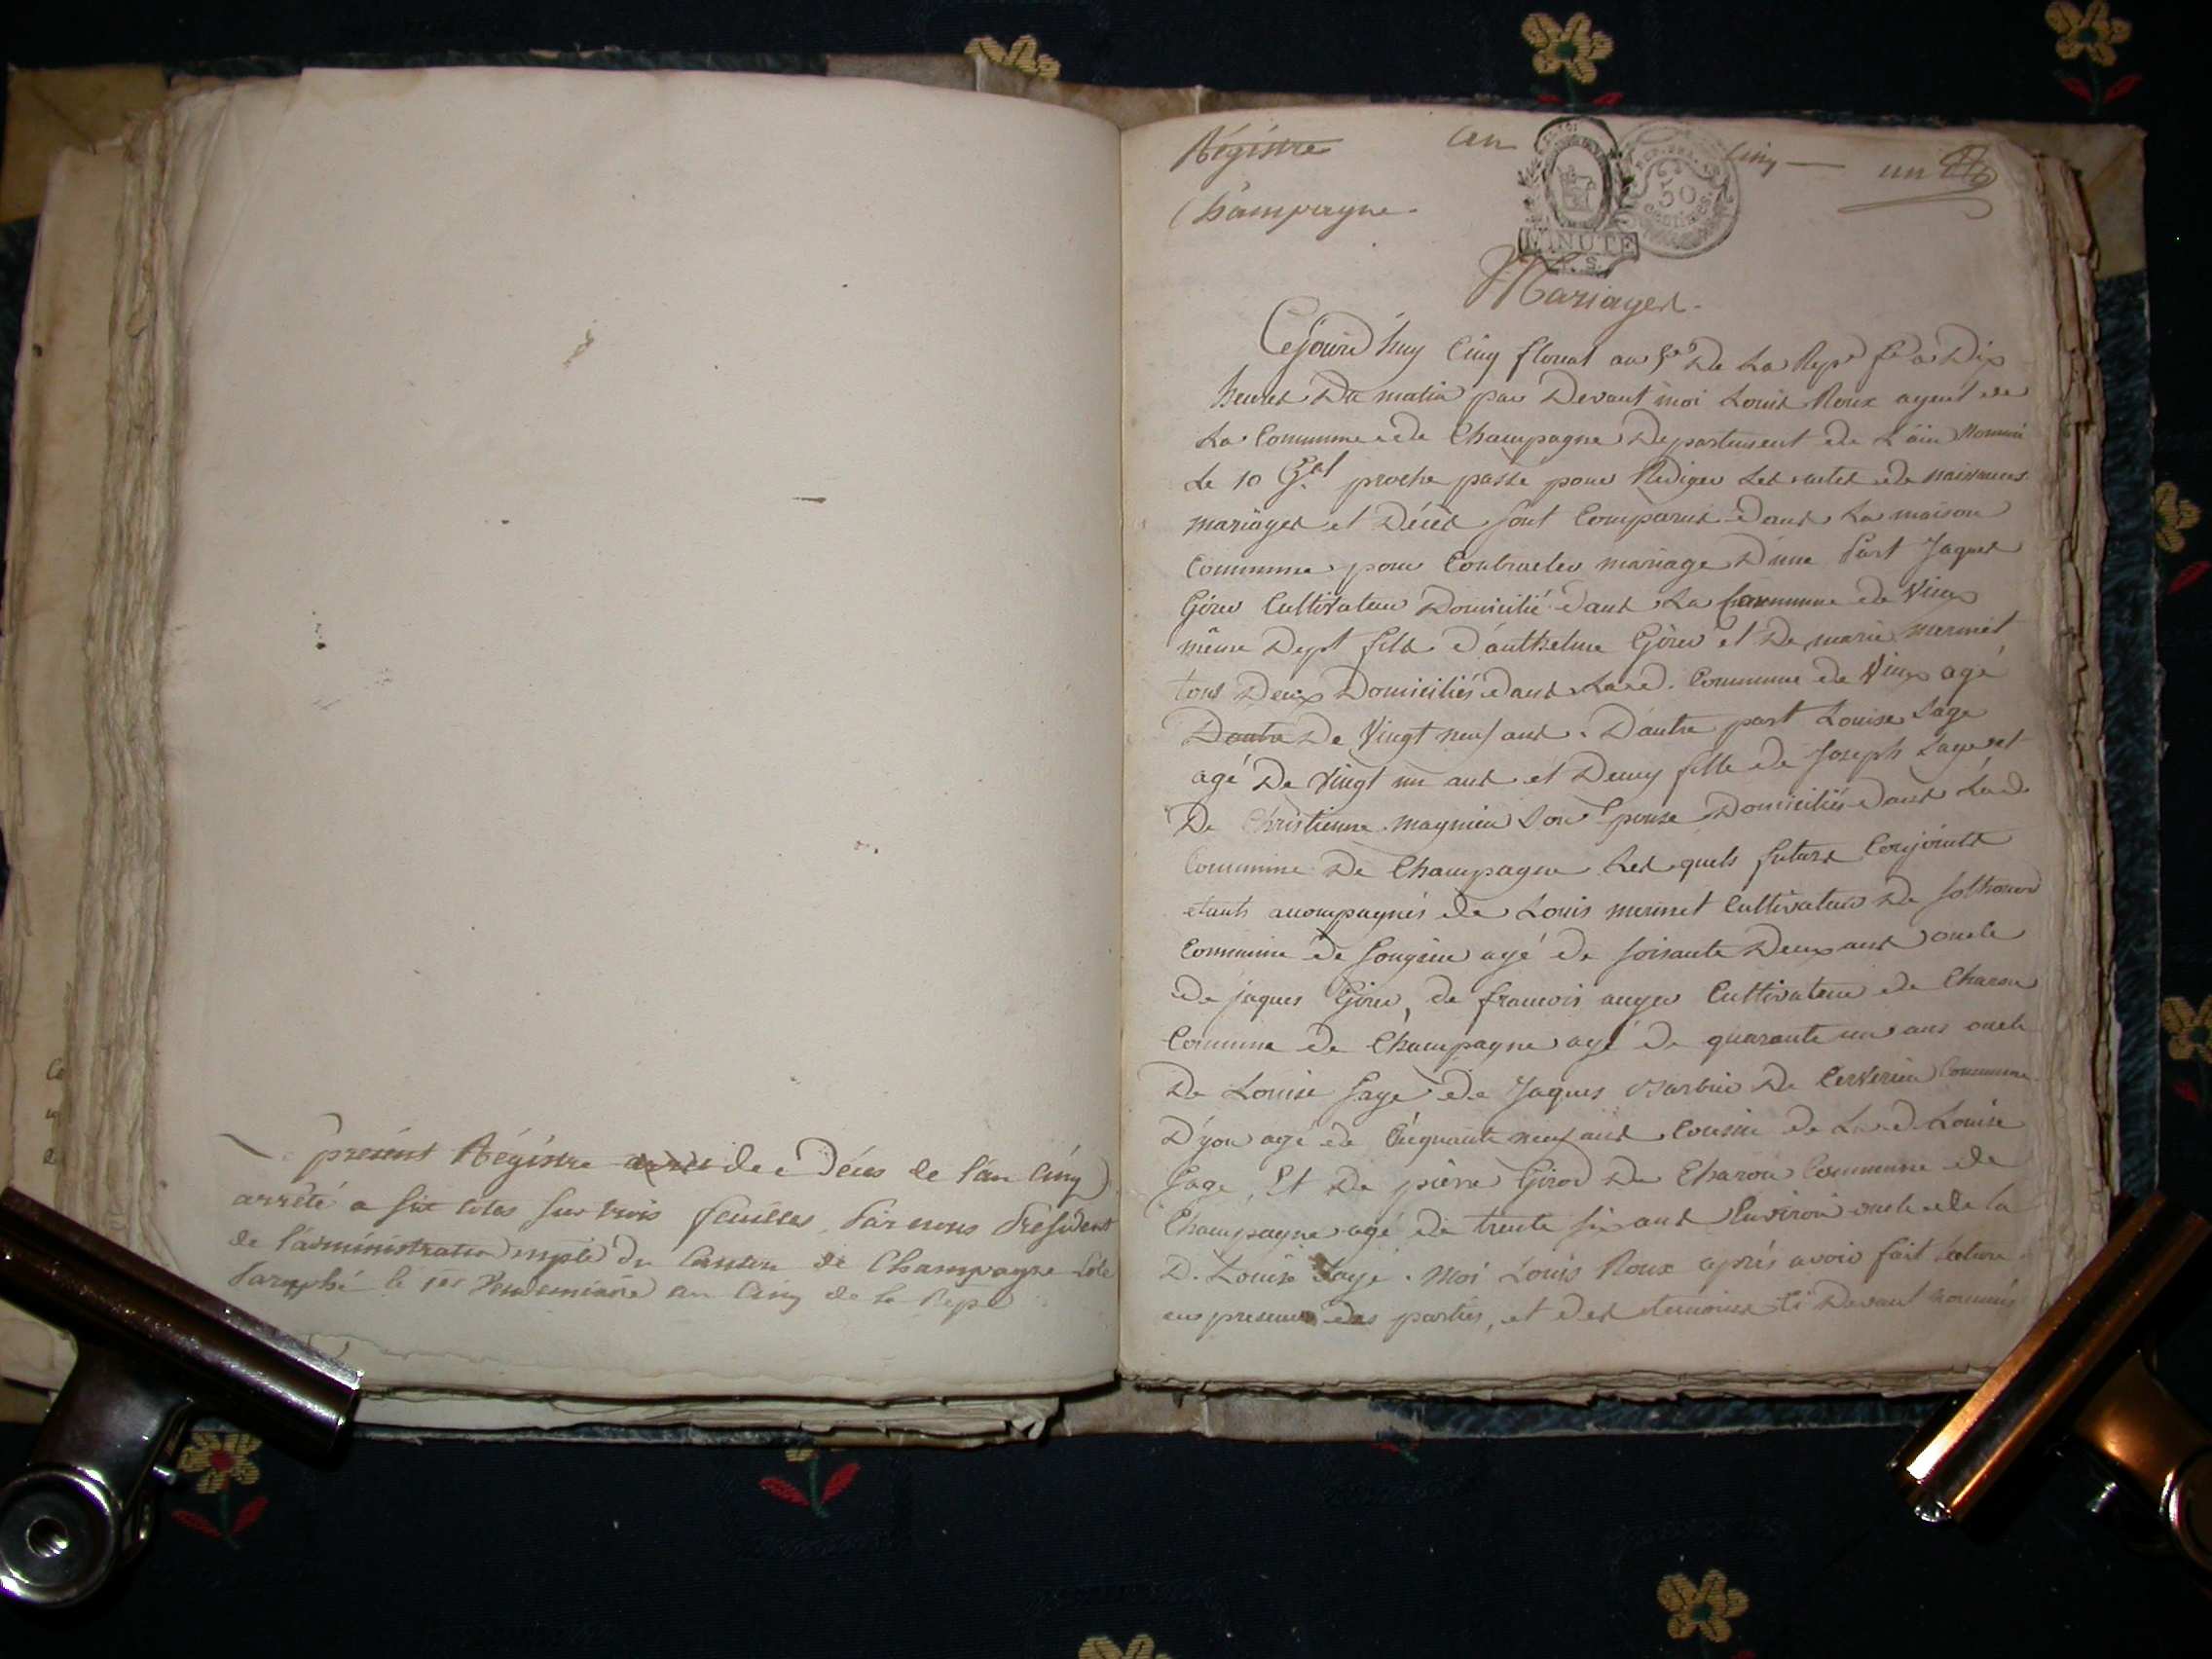 present Régistre des Décès de l'an Cinq
arrêté a six cotes sur trois feuilles par nous Président
de l'administration mple du Canton de Champagne Cote
Paraphé le 1er Vendemiaire an Cinq de la Repe
Régistre an cinq — un
Champagne.
MINUTE
50
centimes
Mariages.
Cejourd'huy Cinq floreal an 5e De La Repe fe a Dix
heures Du matin par Devant moi Louis Roux agent de
La Commune de Champagne Departement de L'ain Nommé
Le 10 Gal proche passé pour Rédiger Les actes de naissances
mariages et Décès sont Comparus dans La maison
Commune pour Contracter mariage D'une Part Jaques
Cultivateur Domicilié dans La Commune de Vieux
même Dept fils D'anthelme et De marie mermet
tous Deux Domiciliés dans Lad. Commune de Vieux agé
Dautre De Vingt neuf ans. D'autre part Louise Sage
agé De Vingt un ans et Demy fille de Joseph Sage et
De Christienne magnieu Son Epouse Domiciliés dans Lad.
Commune De Champagne Les quels futurs Conjoints
etants accompagnés de Louis mermet Cultivateur De sothonod
Commune de Songieu agé de soisante Deux ans oncle
de jaques de francois auger Cultivateur de Charon
Commune de Champagne agé de quarante un ans oncle
De Louise Sage de Jaques Barbier De Cerverieu Commune
D'yon agé de Cinquante neuf ans Cousin de La d. Louise
Sage, Et De pierre Girod De Charon Commune de
Champagne agé de trente six ans Environ oncle de la
D. Louise Sage. Moi Louis Roux après avoir fait Lecture
en presence des parties, et des temoins Ci Devant nommés